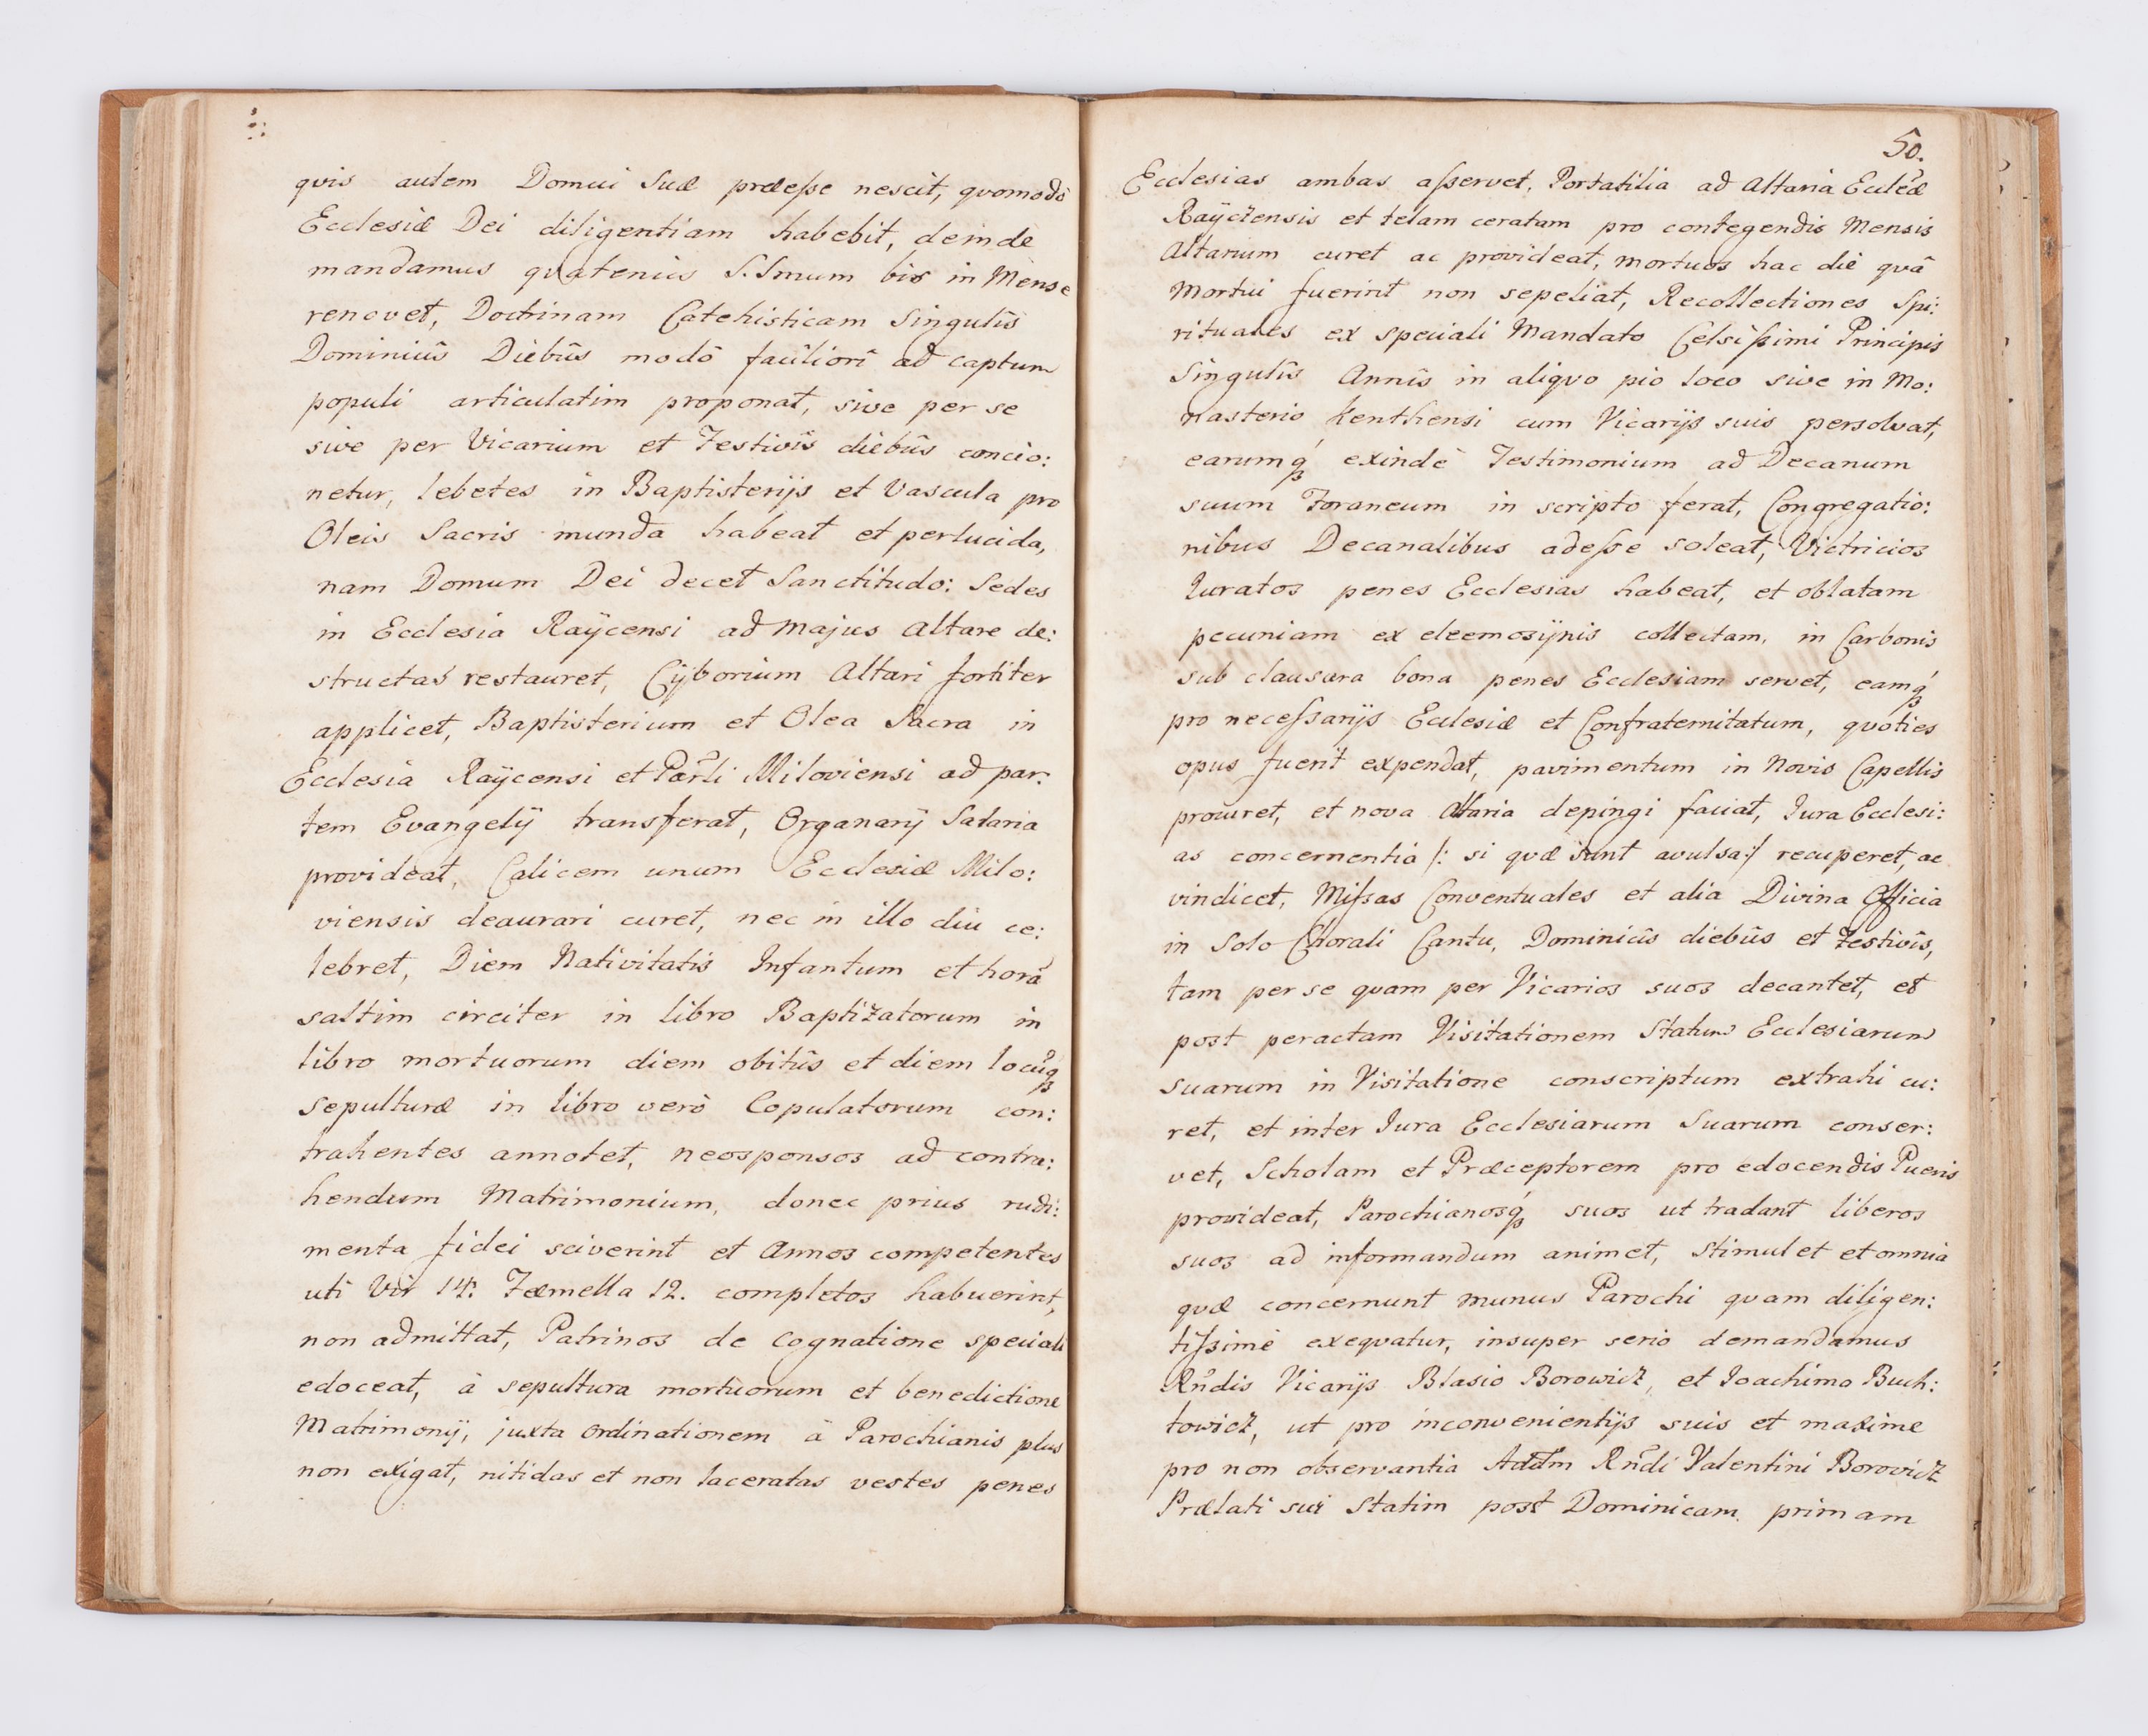 quis autem Domui Suæ præeſse nescit, quomodò
Ecclesiæ Dei diligentiam habebit, deinde
mandamus quatenus S.Smum bis in Mense
renovet, Doctrinam Catehisticam Singulîs
Dominicîs Diebûs modô faciliori ad captum
populi articulatim proponat, sive per se
sive per Vicarium et Festivîs diebûs concio:
netur, lebetes in Baptisterijs et Vascula pro
Oleis Sacris munda habeat et perlucida,
nam Domum Dei decet Sanctitudo: Sedes
in Ecclesia Raÿcensi ad Majus Altare de:
structas restauret, Cÿborium Altari fortiter
applicet, Baptisterium et Olea Sacra in
Ecclesia Raÿcensi et Par̃li Miloviensi ad par:
tem Evangelÿ transferat, Organarÿ Salaria
provideat, Calicem unum Ecclesiæ Milo:
viensis deaurari curet, nec in illo diu ce:
lebret, Diem Nativitatis Infantum et horã
saltim circiter in libro Baptizatorum in
libro mortuorum diem obitûs et diem locũq́ꝫ
Sepulturæ in libro verò Copulatorum con:
trahentes annotet, neosponsos ad contra:
hendum Matrimonium, donec prius rudi:
menta fidei sciverint et Annos competentes
uti Vir 14: Fæmella 12. completos habuerint,
non admittat, Patrinos de Cognatione speciali
edoceat, à sepultura mortuorum et benedictione
Matrimonÿ, juxta ordinationem à Parochianis plus
non exigat, nitidas et non laceratas vestes penes
50.
Ecclesias ambas aſservet, Portatilia ad Altaria Ecclẽæ
Raÿczensis et telam ceratam pro contegendis Mensis
Altarium curet ac provideat, mortuos hac die quâ
Mortui fuerint non sepeliat, Recollectiones Spi:
rituales ex speciali Mandato Celsiſsimi Principis
Singulîs Annîs in aliquo pio loco sive in Mo:
nasterio Kenthensi cum Vicarijs suis persolvat,
earumq́ꝫ exindè Testimonium ad Decanum
suum Foraneum in scripto ferat, Congregatio:
nibus Decanalibus adeſse soleat, Victricios
Iuratos penes Ecclesias habeat, et oblatam
pecuniam ex eleemosijnis collectam, in Carbonis
sub clausura bona penes Ecclesiam servet, eamq́ꝫ
pro neceſsarijs Ecclesiæ et Confraternitatum, quoties
opus fuerit expendat, pavimentum in Novis Capellis
procuret, et nova Altaria depingi faciat, Iura Ecclesi:
as concernentia /: si quæ sunt avulsa:/ recuperet, ac
vindicet, Miſsas Conventuales et alia Divina Officia
in Solo Chorali Cantu, Dominicîs diebûs et Festivîs,
tam per se quam per Vicarios suos decantet, et
post peractam Visitationem Statum Ecclesiarum
suarum in Visitatione conscriptum extrahi cu:
ret, et inter Iura Ecclesiarum Suarum conser:
vet, Scholam et Præceptorem pro edocendis Pueris
provideat, Parochianosq́ꝫ suos ut tradant liberos
suos ad informandum animet, stimulet et omnia
quæ concernunt munus Parochi quam diligen:
tiſsimè exequatur, insuper serio demandamus
Rñdis Vicarijs Blasio Borowicz, et Ioachimo Buch:
towicz, ut pro inconvenientijs suis et maxime
pro non observantia Rñdi Valentini Borowicz
Prælati sui Statim post Dominicam primam